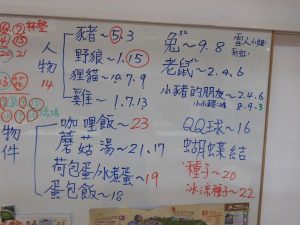 人物
14
豬~5.3
野狼~1.15
狸貓~1.2.7.9
雞~1.7.13
兔~9.8
老鼠~2.4.6
小豬的朋友~2.4.6
QQ球~16
蝴蝶結
種子~20
冰凍種子~22
物件
咖哩飯~23
蘑菇湯~21.17
荷包蛋/水煮蛋~19
蛋包飯~18